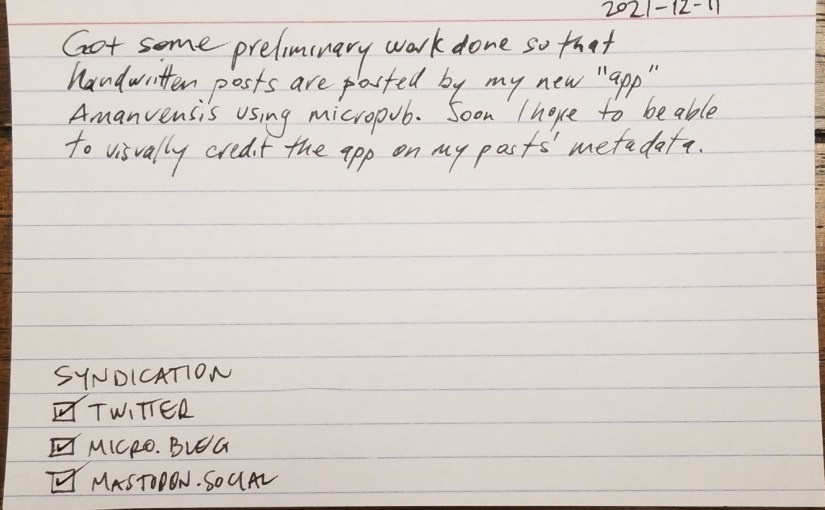 2021-12-11
Got some preliminary work done so that
handwritten posts are posted by my new "app"
Amanuensis using micropub. Soon I hope to be able
to visually credit the app on my posts' metadata.
SYNDICATION
☑ TWITTER
☑ MICRO.BLOG
☑ MASTODON.SOCIAL